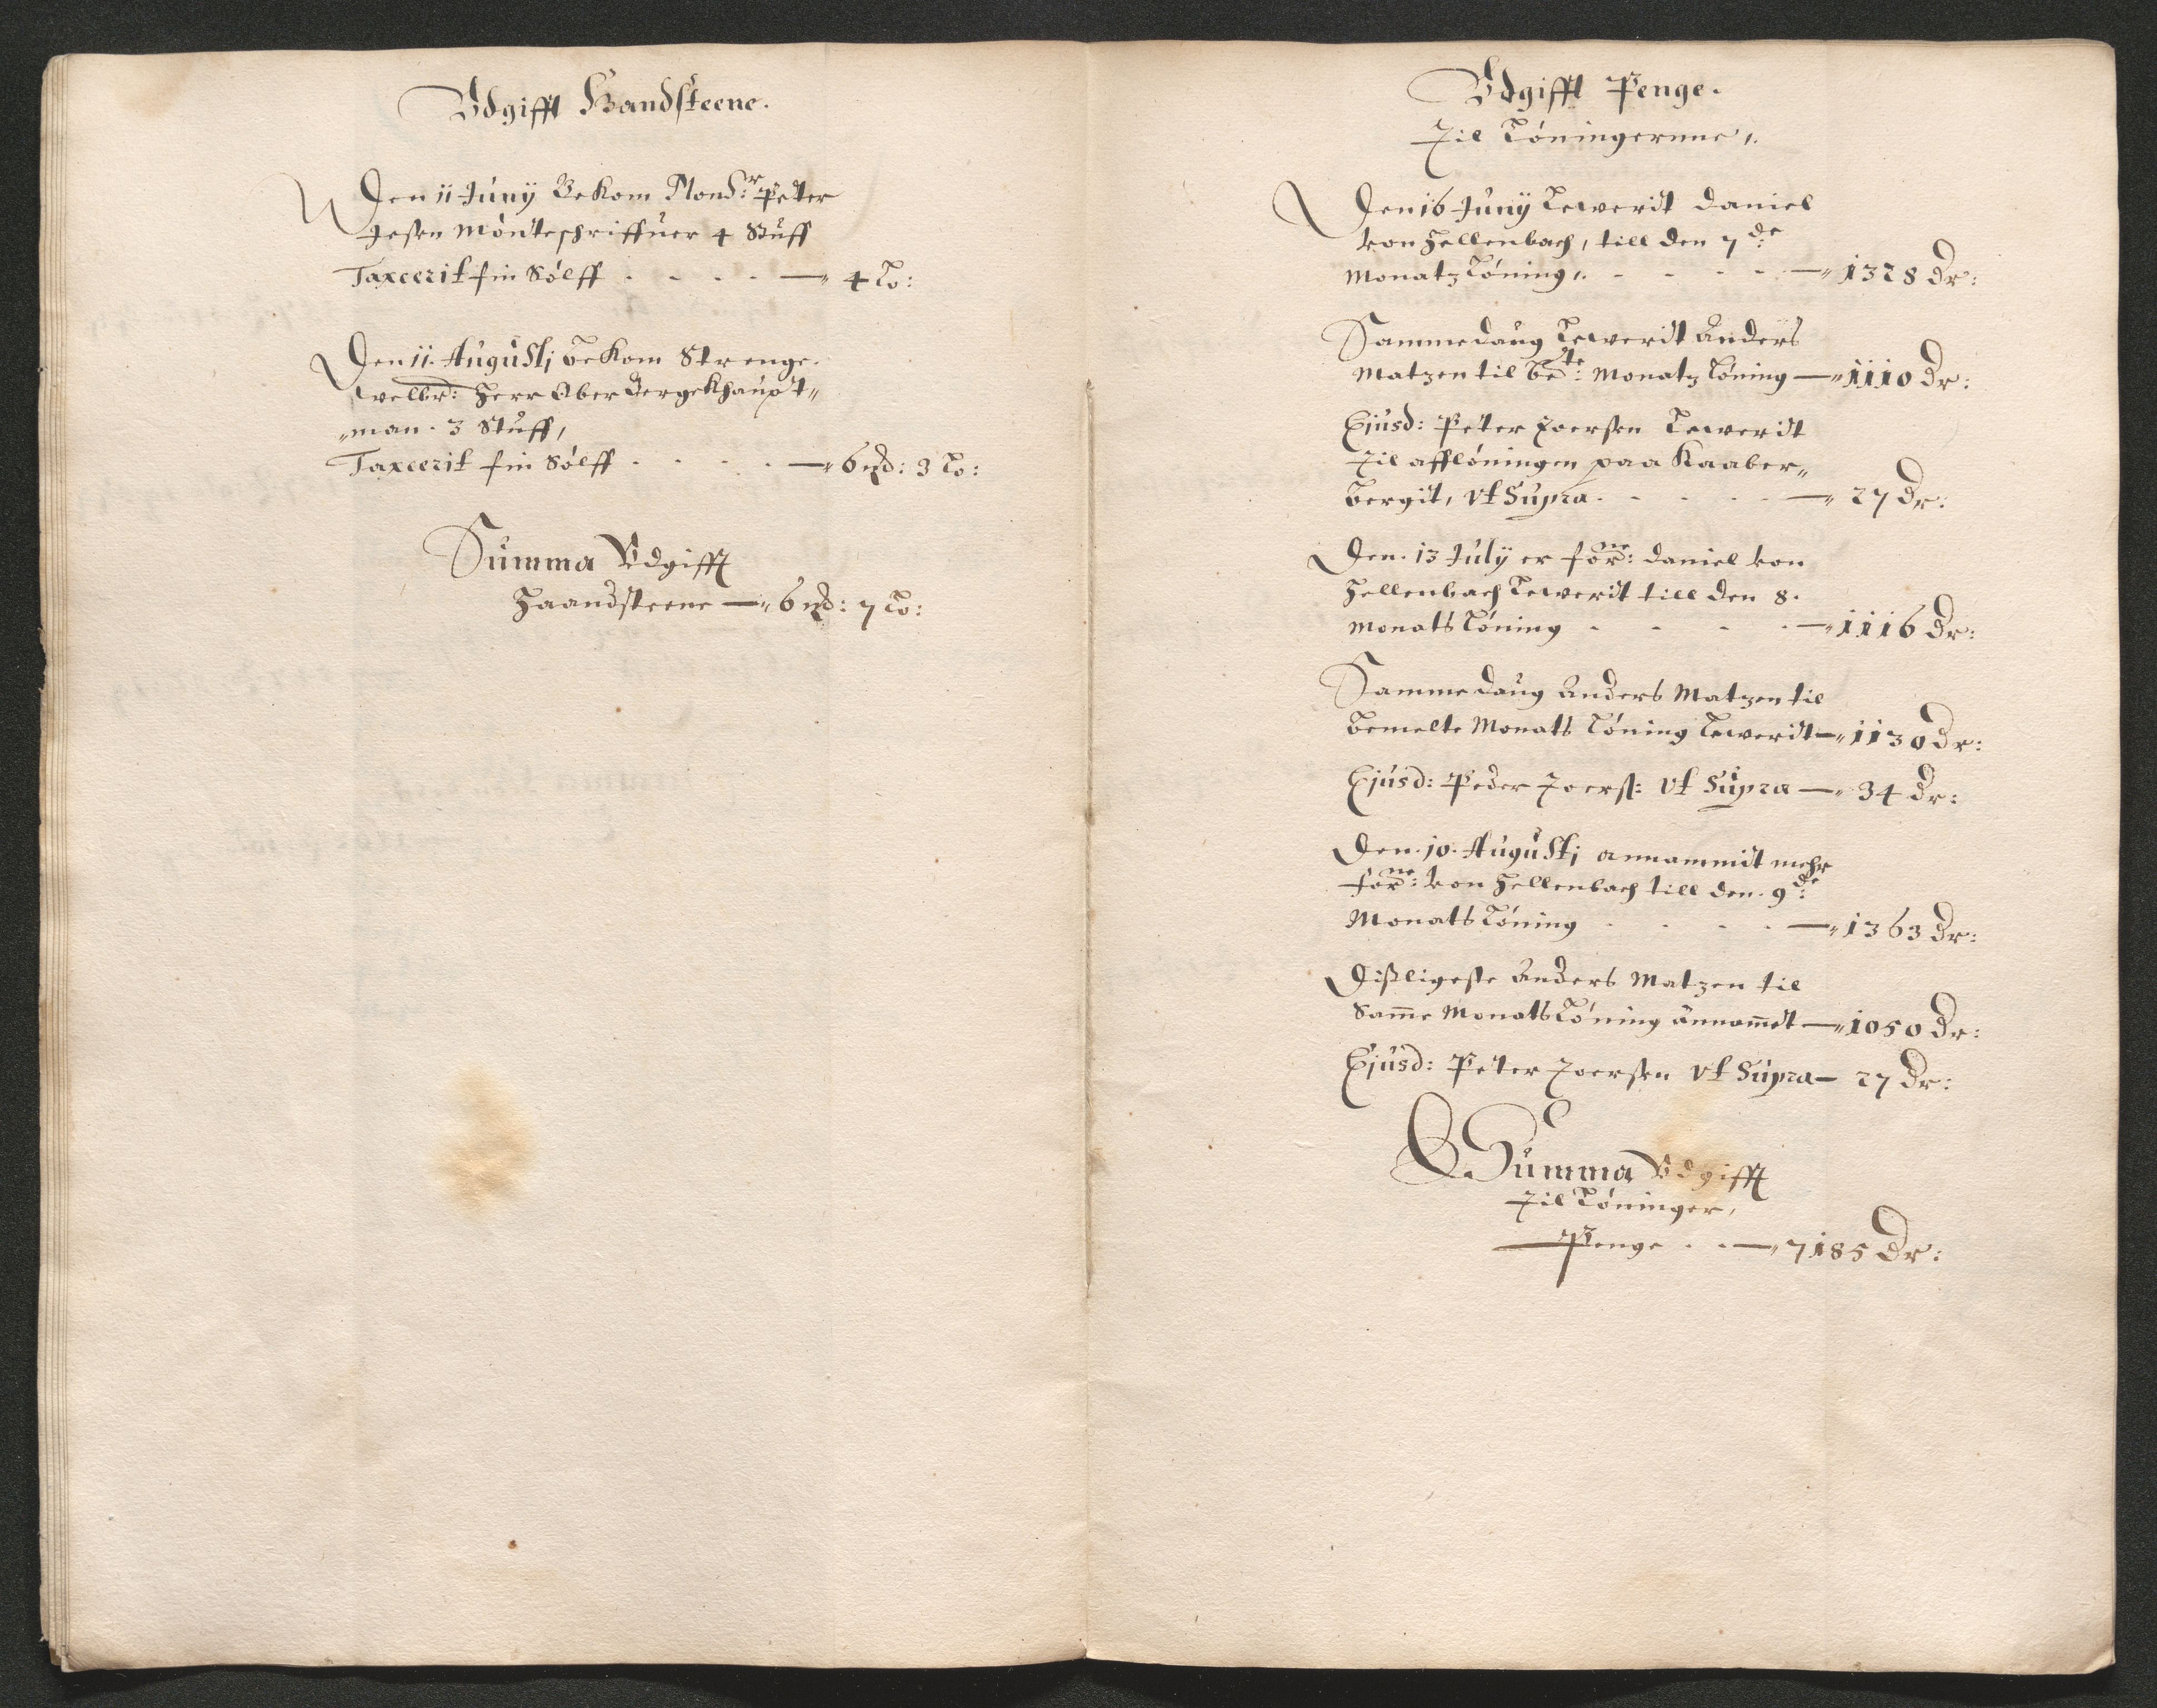 Vdgifft Handsteene.
Den 11 Junij Bekom Mons:r Peter
Jeßen Mönteschriffuer 4 Stuff
Taxcerit fin Sölff - - - - — 4 Lo:
Den 11. Augustj bekom Strenge
velbr: Herr Ober Bergekhaupt„
„man. 3 Stuff,
Taxcerit fin Sölff - - - - — 6 mk: 3 Lo:
Summa Vdgifft
Haandsteene — 6 mk: 7 Lo:
Vdgifft Penge.
Til Löningerne,.
Den 16 Junij Leverit Daniel
von Hellenbach, till den 7de:
Monatz Löning,. - - - - — 1328 Dr:
Samme daug Leverit Anders
Matzen til bete: Monatz Löning — 1110 Dr:
Ejusd: Peter Joerßen Leverit
til afflöningen paa Kaaber„
bergit, vt Supra. - - - — 27 Dr:
Den. 13 Julij er forne: Daniel von
Hellenbach Leverit till den 8.
Monats Löning - - - - — 1116 Dr:
Samme daug Anders Matzen til
bemelte Monats Löning Leverit — 1130 Dr:
Ejusd: Peder Joerß: vt Supra — 34 Dr:
Den. 10. Augustj annammit mehr
forne: von Hellenbach till den. 9de:
Monats Löning - - - - — 1363 Dr:
Dißligeste Anders Matzen til
Same Monats Löning annamet — 1050 Dr:
Ejusd: Peter Joerßen vt Supra — 27 Dr:
Summa Vdgifft
til Löninger,
Penge - - — 7185 Dr: